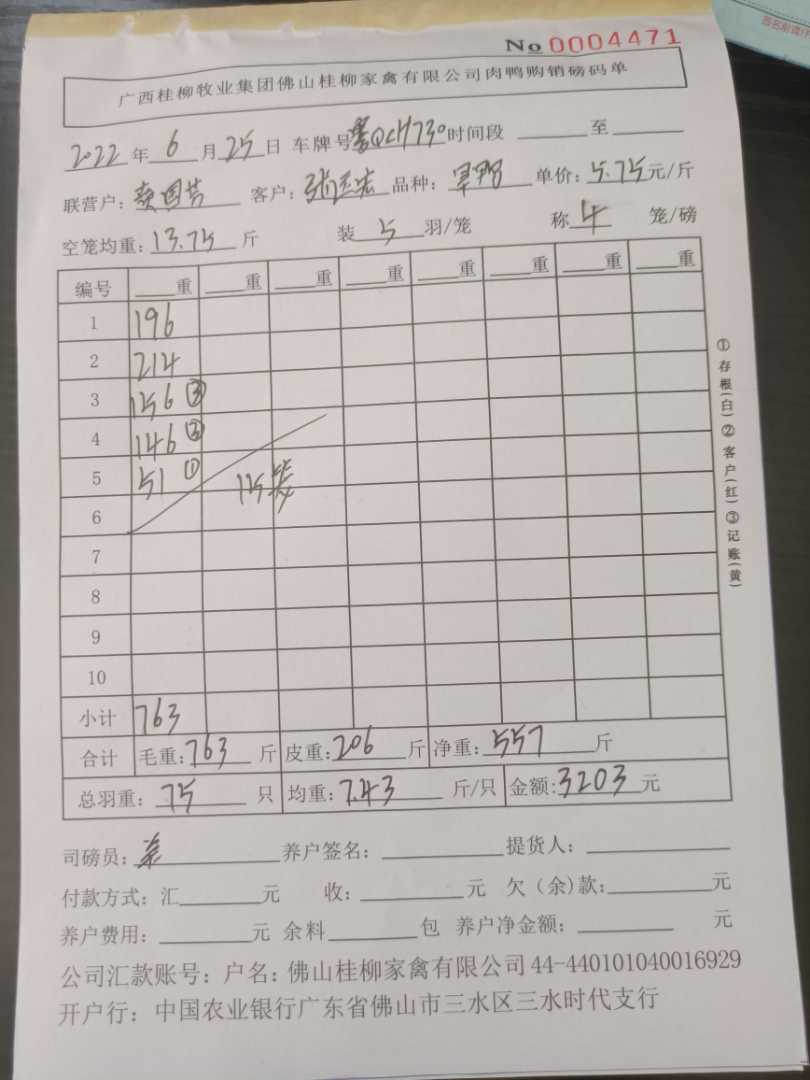 No 0004471
广西桂柳牧业集团佛山桂柳家禽有限公司肉鸭购销磅码单
2022年6月25日 车牌号粤QCH730 时间段 至
联营户: 国芸 客户: 张 品种: 单价: 5.75元/斤
空笼均重: 13.75 斤 装 5 羽/笼 称 4 笼/磅
编号 重 重 重 重 重 重 重 重
1 196
2 214
3 156 ③
4 146 ③
5 51 ① 15笼
6
7
8
9
10
小计 763
合计 毛重: 763 斤 皮重: 206 斤 净重: 557 斤
总羽重: 75 只 均重: 7.43 斤/只 金额: 3203 元
司磅员: 养户签名: 提货人:
付款方式: 汇 元 收: 元 欠(余)款: 元
养户费用: 元 余料 包 养户净金额: 元
公司汇款账号: 户名: 佛山桂柳家禽有限公司 44-440101040016929
开户行: 中国农业银行广东省佛山市三水区三水时代支行
①存根(白)②客户(红)③记账(黄)